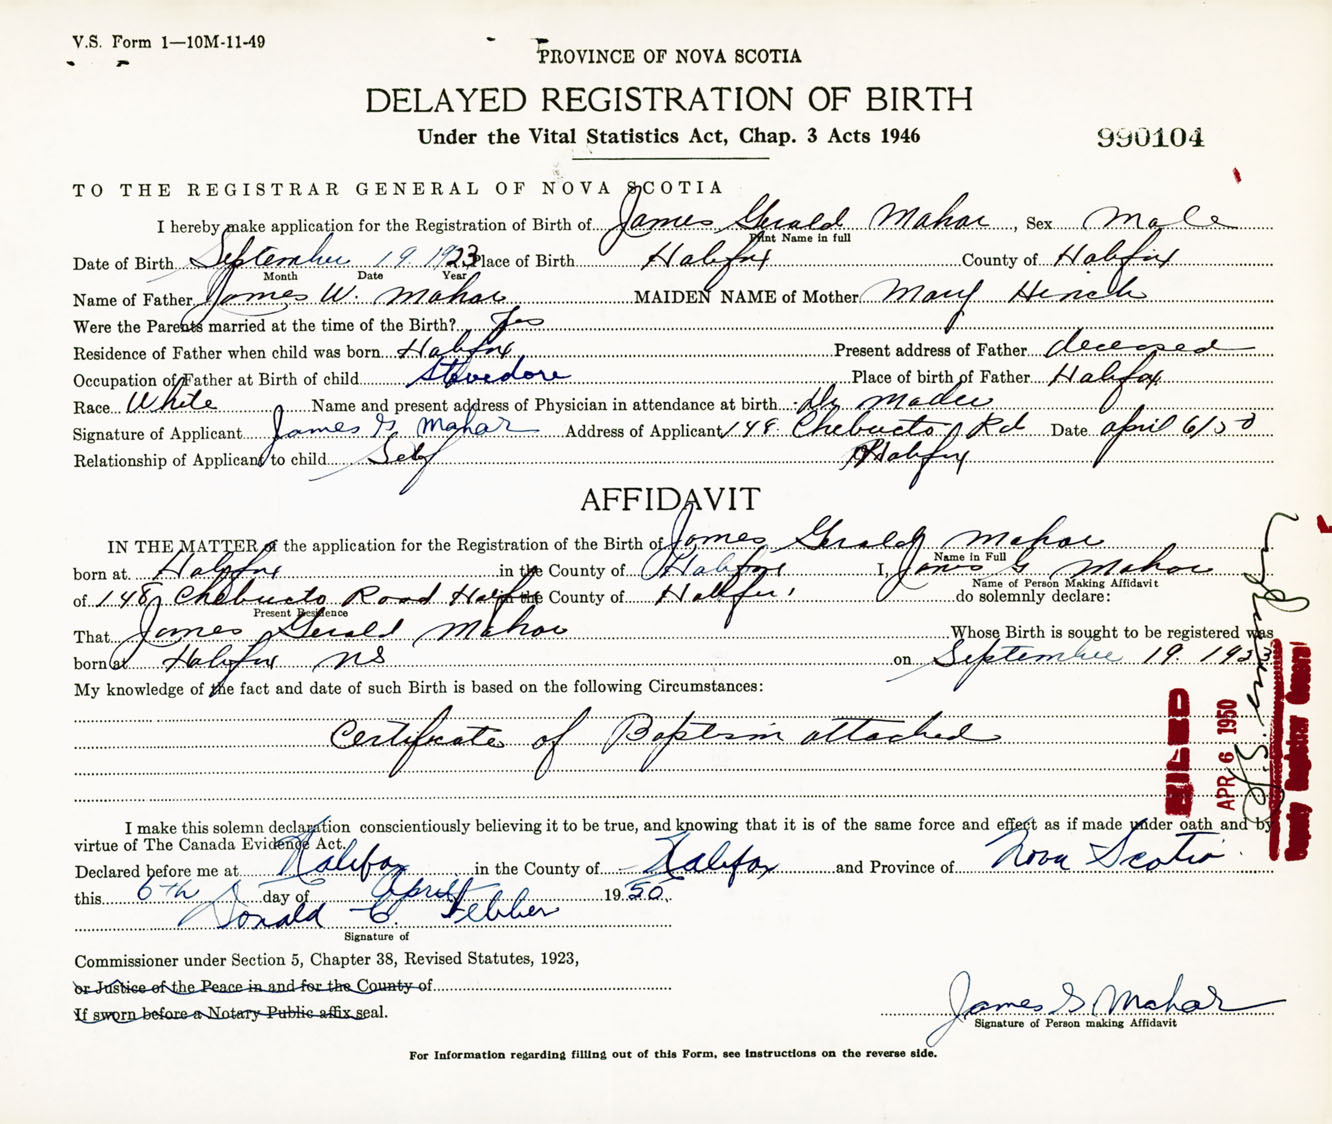 V.S. Form 1—10M-11-49
PROVINCE OF NOVA SCOTIA
DELAYED REGISTRATION OF BIRTH
Under the Vital Statistics Act, Chap. 3 Acts 1946
990104
TO THE REGISTRAR GENERAL OF NOVA SCOTIA
I hereby make application for the Registration of Birth of James Gerald Mahar, Sex Male
Print Name in full
Date of Birth September 19 1923 Place of Birth Halifax County of Halifax
Month Date Year
Name of Father James W. Mahar MAIDEN NAME of Mother Mary Hinch
Were the Parents married at the time of the Birth? Yes
Residence of Father when child was born Halifax Present address of Father deceased
Occupation of Father at Birth of child Stevedore Place of birth of Father Halifax
Race White Name and present address of Physician in attendance at birth Dr Madee
Signature of Applicant James G Mahar Address of Applicant 148 Chebucto Rd Date April 6/50
Relationship of Applicant to child Self Halifax
AFFIDAVIT
IN THE MATTER of the application for the Registration of the Birth of James Gerald Mahar
Name in Full
born at Halifax in the County of Halifax I, James G Mahar
Name of Person Making Affidavit
of 148 Chebucto Road Halifax in the County of Halifax do solemnly declare:
Present Residence
That James Gerald Mahar Whose Birth is sought to be registered was
born at Halifax NS on September 19. 1923
My knowledge of the fact and date of such Birth is based on the following Circumstances:
Certificate of Baptism attached
FILED
APR 6 1950
Deputy Registrar General
I make this solemn declaration conscientiously believing it to be true, and knowing that it is of the same force and effect as if made under oath and by
virtue of The Canada Evidence Act.
Declared before me at Halifax in the County of Halifax and Province of Nova Scotia.
this 6th day of April 1950.
Donald C.
Signature of
Commissioner under Section 5, Chapter 38, Revised Statutes, 1923,
or Justice of the Peace in and for the County of
If sworn before a Notary Public affix seal.
James G Mahar
Signature of Person making Affidavit
For Information regarding filling out of this Form, see instructions on the reverse side.